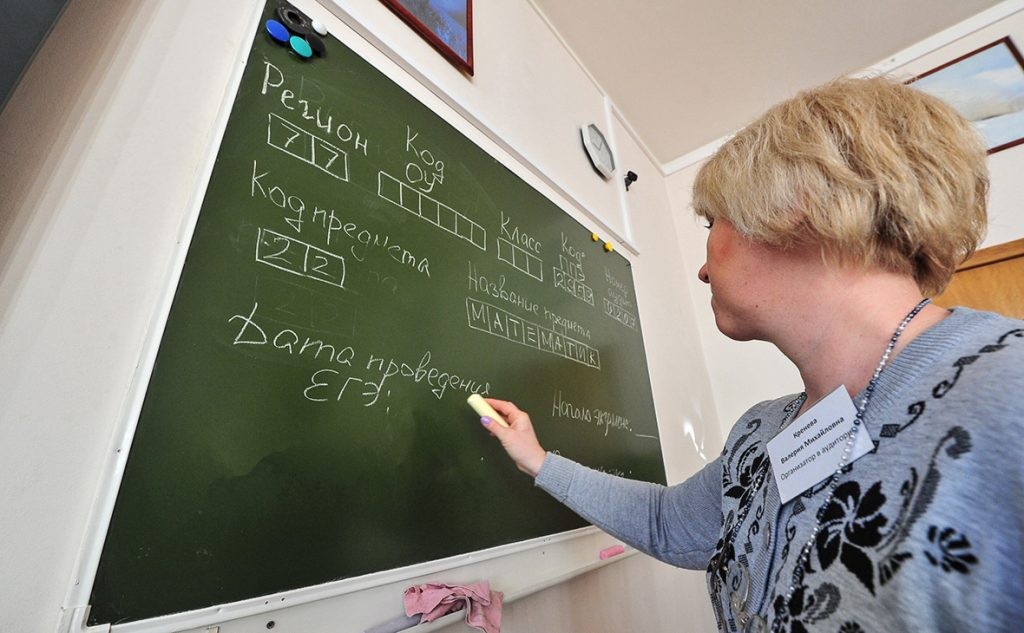 Регион
77
Код
ОУ
Код предмета
22
Класс
Код
ППЭ
Название предмета
МАТЕМАТИК
Дата проведения
ЕГЭ:
Начало экзамена:
Кренева
Валерия Михайловна
Организатор в аудитории